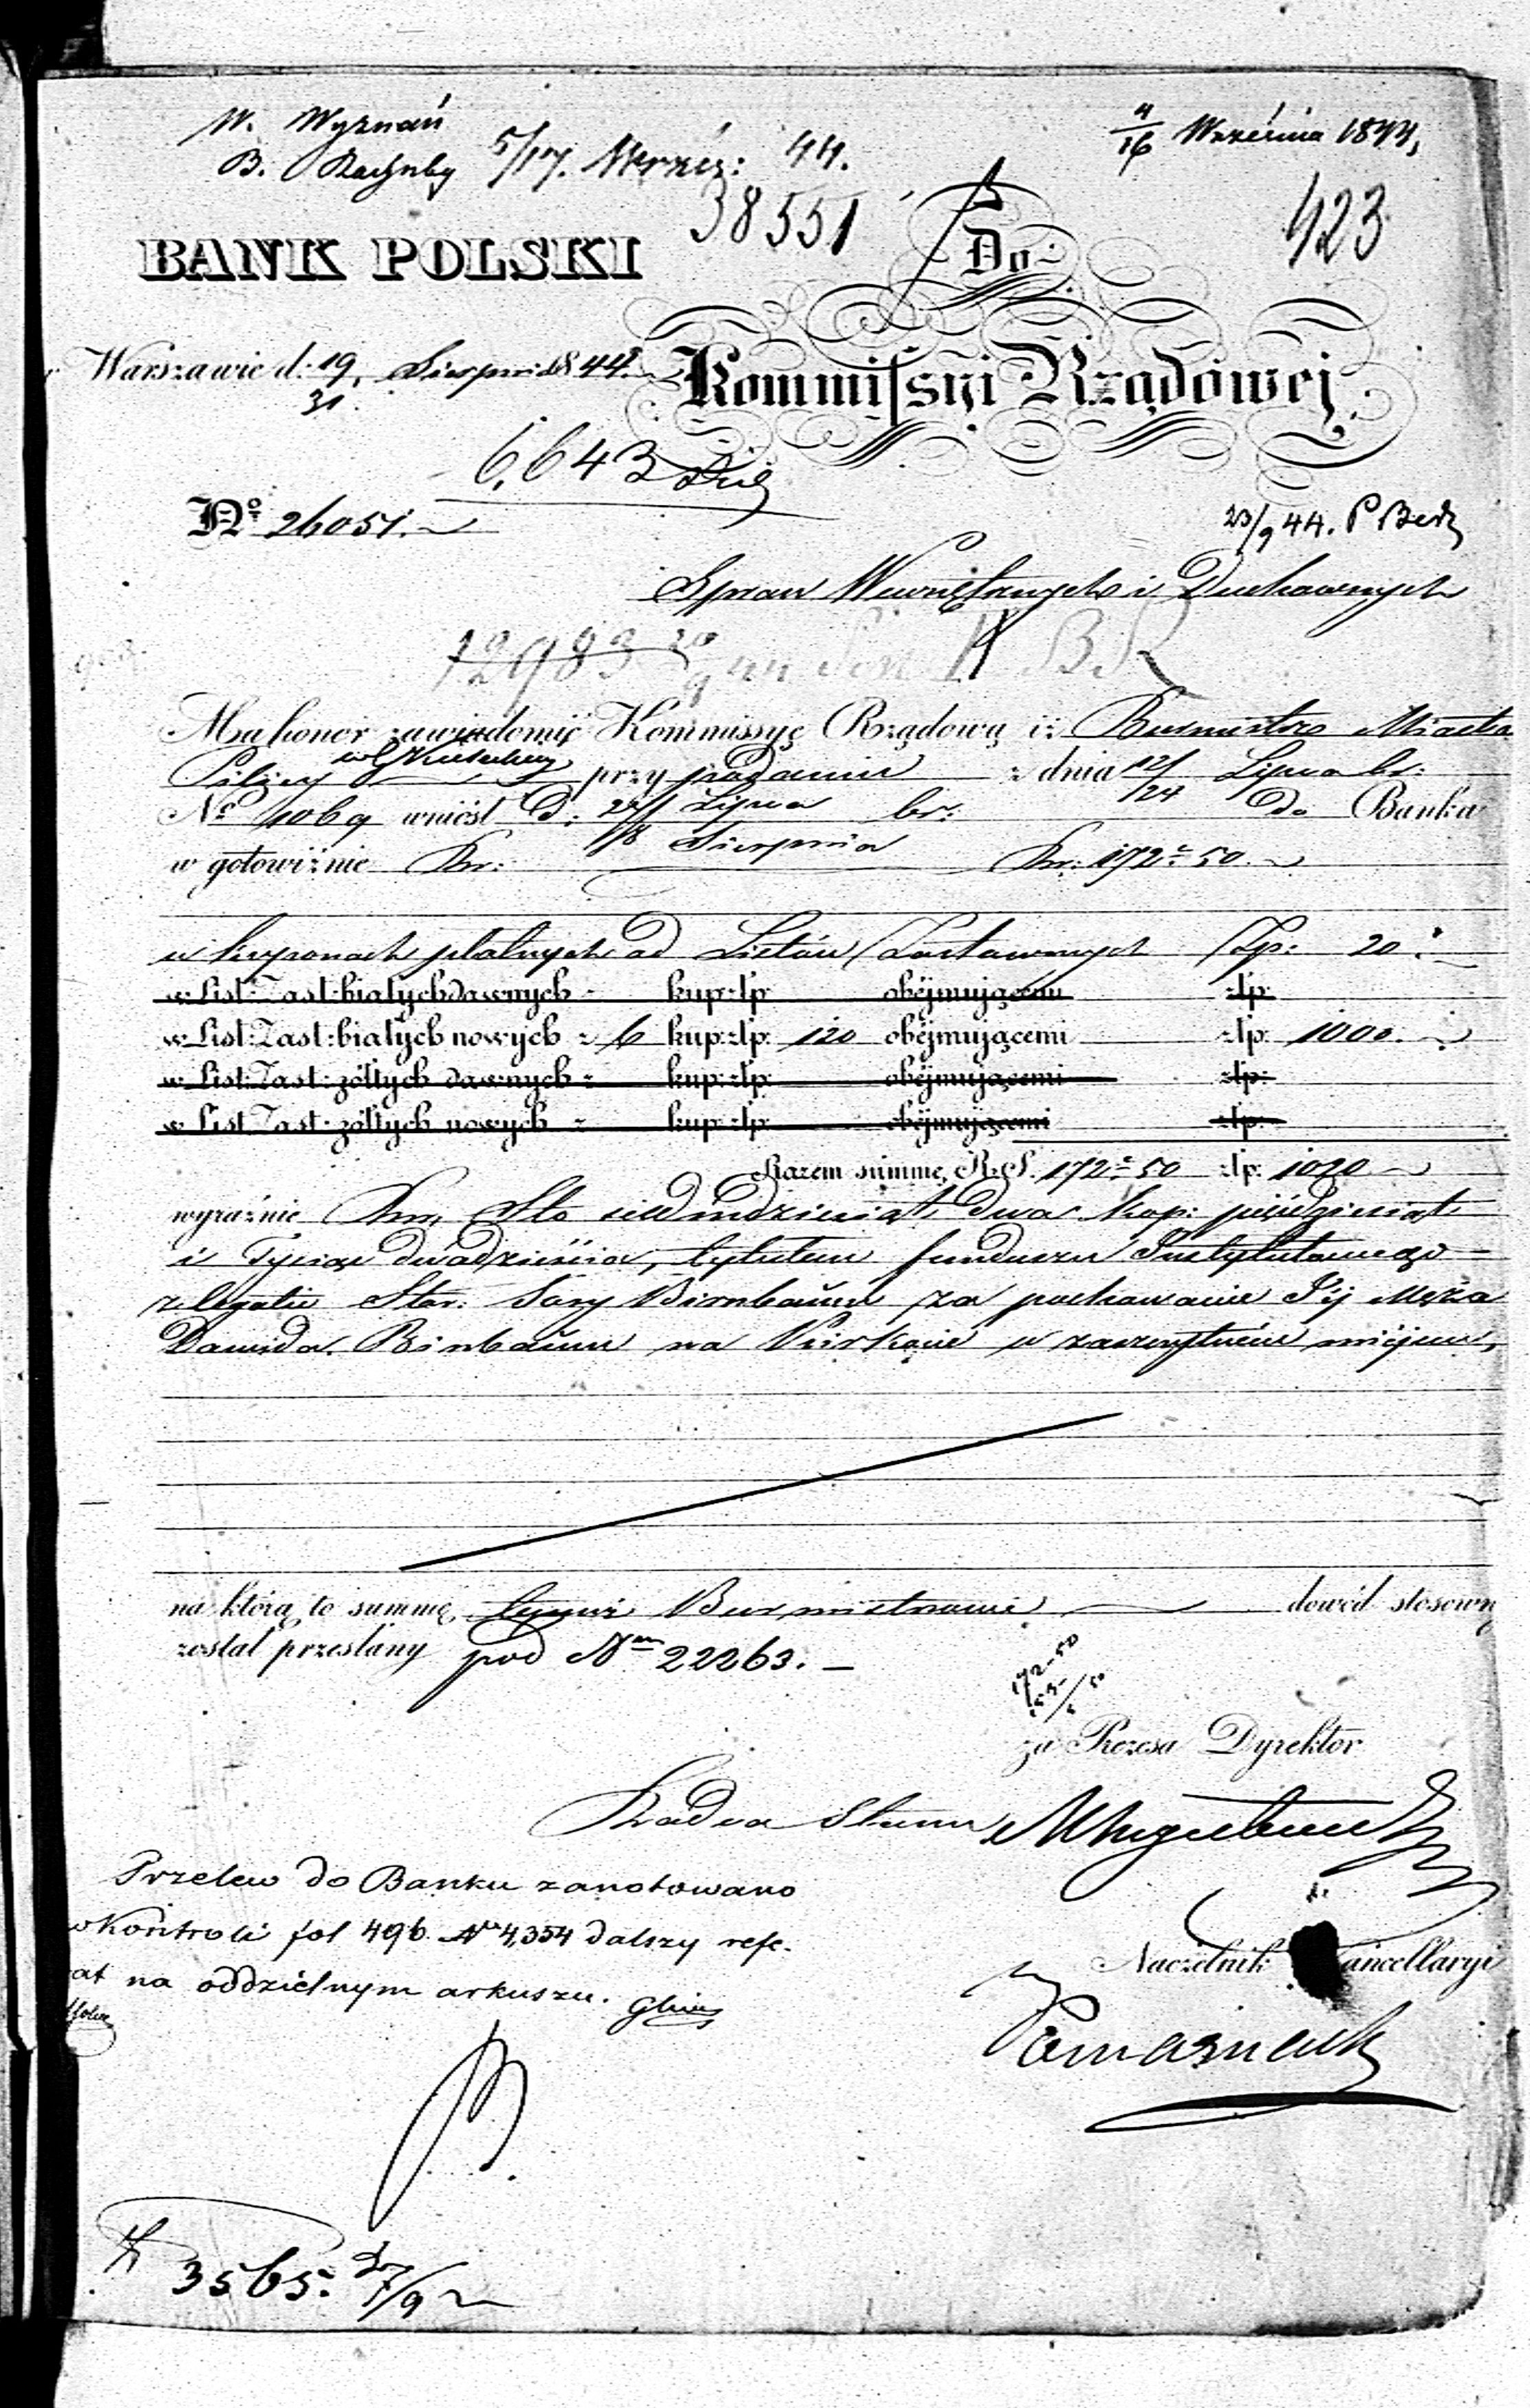 W. Wyznań
B. Rachuby 5/17. Wrześ: 44.
4/16 Września 1844,
38551
423
BANK POLSKI
Do
Warszawie d: 19/31 Sierpnia 1844.
Kommissyi Rządowej
6,643
No 26051.
23/9 44. P
Spraw Wewnętrznych i Duchownych
12983 20/9
Ma honor zawiadomić Kommissyę Rządową iż Burmistrz Miasta
Pilicy przy podaniu z dnia 12/24 Lipca br:
No 1069 wniósł D: 27/8 Lipca/Sierpnia br: do Banku
w gotowiźnie Rsr: Rsr: 172 50.
w kuponach płatnych od Listów Zastawnych Złp: 20
w List: Zast: białych dawnych z kup: złp: obejmującemi złp:
w List: Zast: białych nowych z 6 kup: złp: 120 obejmującemi złp: 1000.
w List: Zast: żółtych dawnych z kup: złp: obejmującemi złp:
w List: Zast: żółtych nowych z kup: złp: obejmującemi złp:
Razem summę R. S. 172 50 złp: 1020
wyraźnie Rsr, Sto siedmdziesiąt dwa kop: pięćdziesiąt
i Tysiąc dwadzieścia, tytułem funduszu Instytutowego
z legatu Star: Sary Birnbaum za pochowanie Jej Męża
Dawida Birnbaum na Kirkucie w zaszczytném miejscu,
na którą to summę, temuż Burmistrzowi dowód stosowny
został przesłany pod Nrem 22263.
172-50
za Prezesa Dyrektor
Radca Stanu
Przelew do Banku zanotowano
w Kontroli fol 496. No 4,354 dalszy refe-
rat na oddzielnym arkuszu.
Naczelnik Kancellaryi
3565.